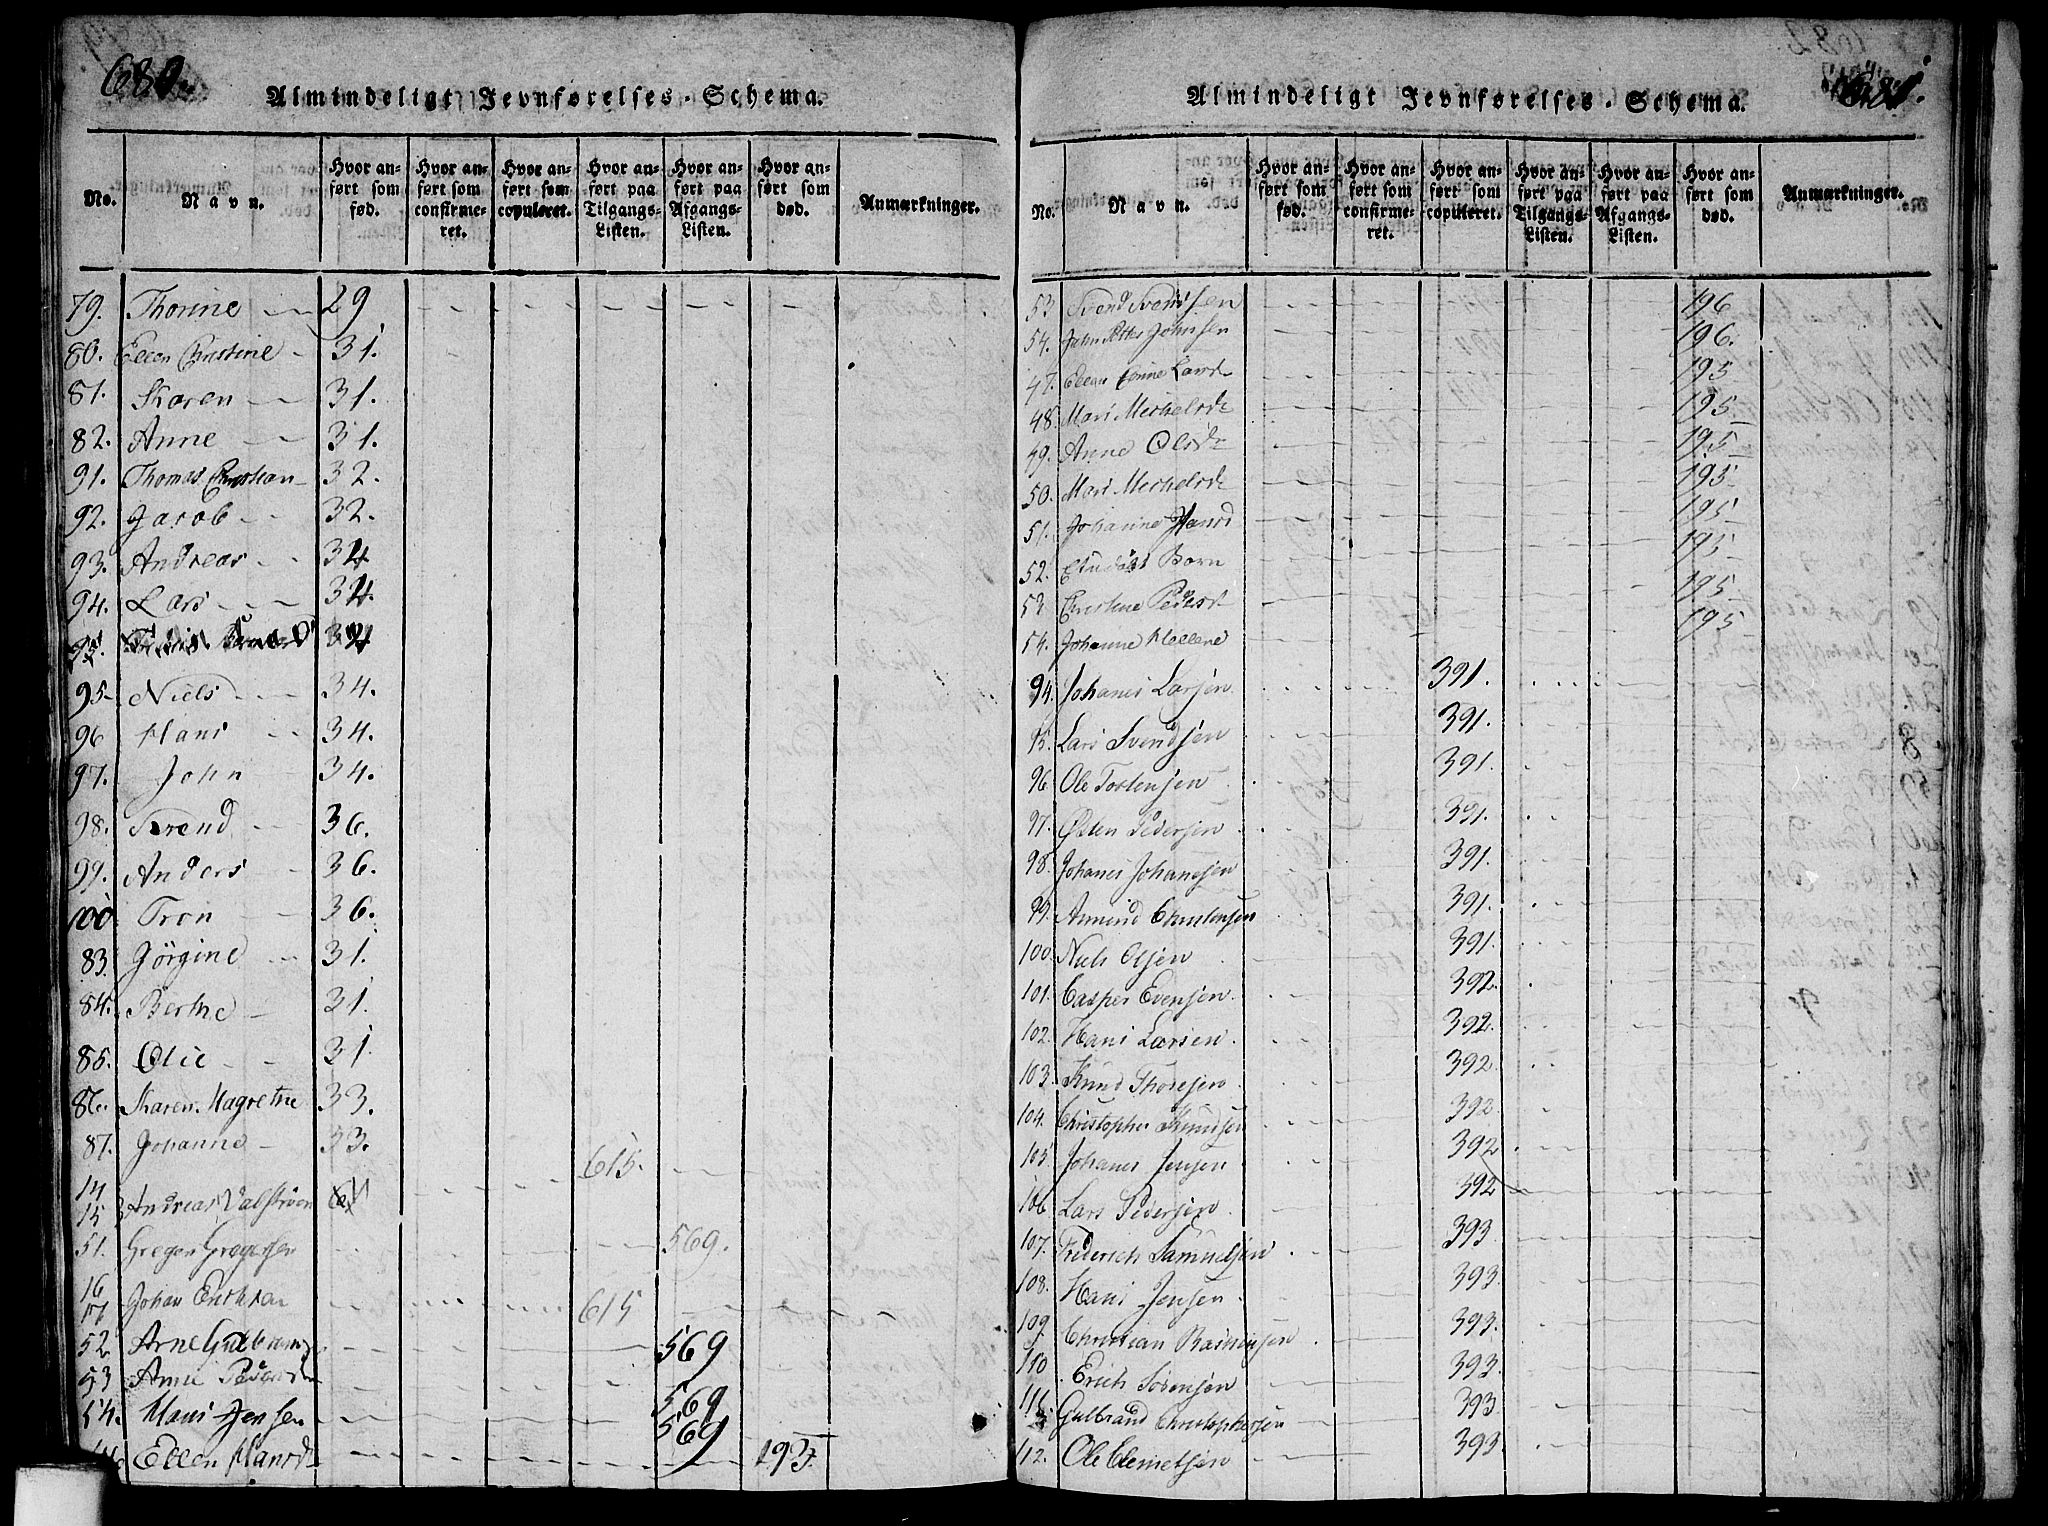 680.
Almindeligt Jevnførelses-Schema.
No.
Navn.
Hvor anført som fød.
Hvor anført som confirmeret.
Hvor anført som copuleret.
Hvor anført paa Tilgangs-Listen.
Hvor anført paa Afgangs-Listen.
Hvor anført som død.
Anmærkninger.
79. Thorine 29
80. Ellen Christine 31.
81. Karen 31.
82. Anne 31.
91. Thomas Christian 32.
92. Jacob 32.
93. Andreas 34
94. Lars 34.
95. 34
95 Niels 34.
96 Hans 34.
97. John 34.
98. Svend 36.
99. Anders 36.
100 Tron 36.
83. Jörgine 31.
84. Berthe 31.
85. Olie 31.
86. Karen Magrethe 33.
87. Johanne 33.
14 15 Andreas Valstrøm 615.
51. Gregor Gregersen 569.
16 17 Johan 615
52. Arne 569
53 Anne
54. Hans Jensen 569
569
Ellen Hansd 193.
681.
Almindeligt Jevnførelses-Schema.
No.
Navn.
Hvor anført som fød.
Hvor anført som confirmeret.
Hvor anført som copuleret.
Hvor anført paa Tilgangs-Listen.
Hvor anført paa Afgangs-Listen.
Hvor anført som død.
Anmærkninger.
53 Svend Svendsen 196
54. John Johnsen 196.
47. Ellen Larsd 195
48. Mari Michelsd 195
49. Anne Olsd 195
50. Mari Michelsd 195
51. Johanne Hansd 195
52. Barn 195
53 Christine Pedersd 195
54. Johanne Hellene 195
94. Johanes Larsen 391.
95. Lars Svendsen 391.
96 Ole Torstensen 391.
97. Østen Pedersen 391.
98. Johanes Johansen 391.
99. Amund Christensen 391.
100. Niels Olsen 391.
101. Casper Evensen 392.
102. Hans Larsen 392.
103. Knud Thoresen 392.
104. Christopher Knudsen 392
105. Johanes Jensen 392
106 Lars Pedersen 392
107. Friderich Samuelsen 393
108. Hans Jensen 393.
109. Christian Rasmussen 393.
110 Erich Sörensen 393.
111. Gulbrand Christophersen 393
112. Ole Clemetsen 393